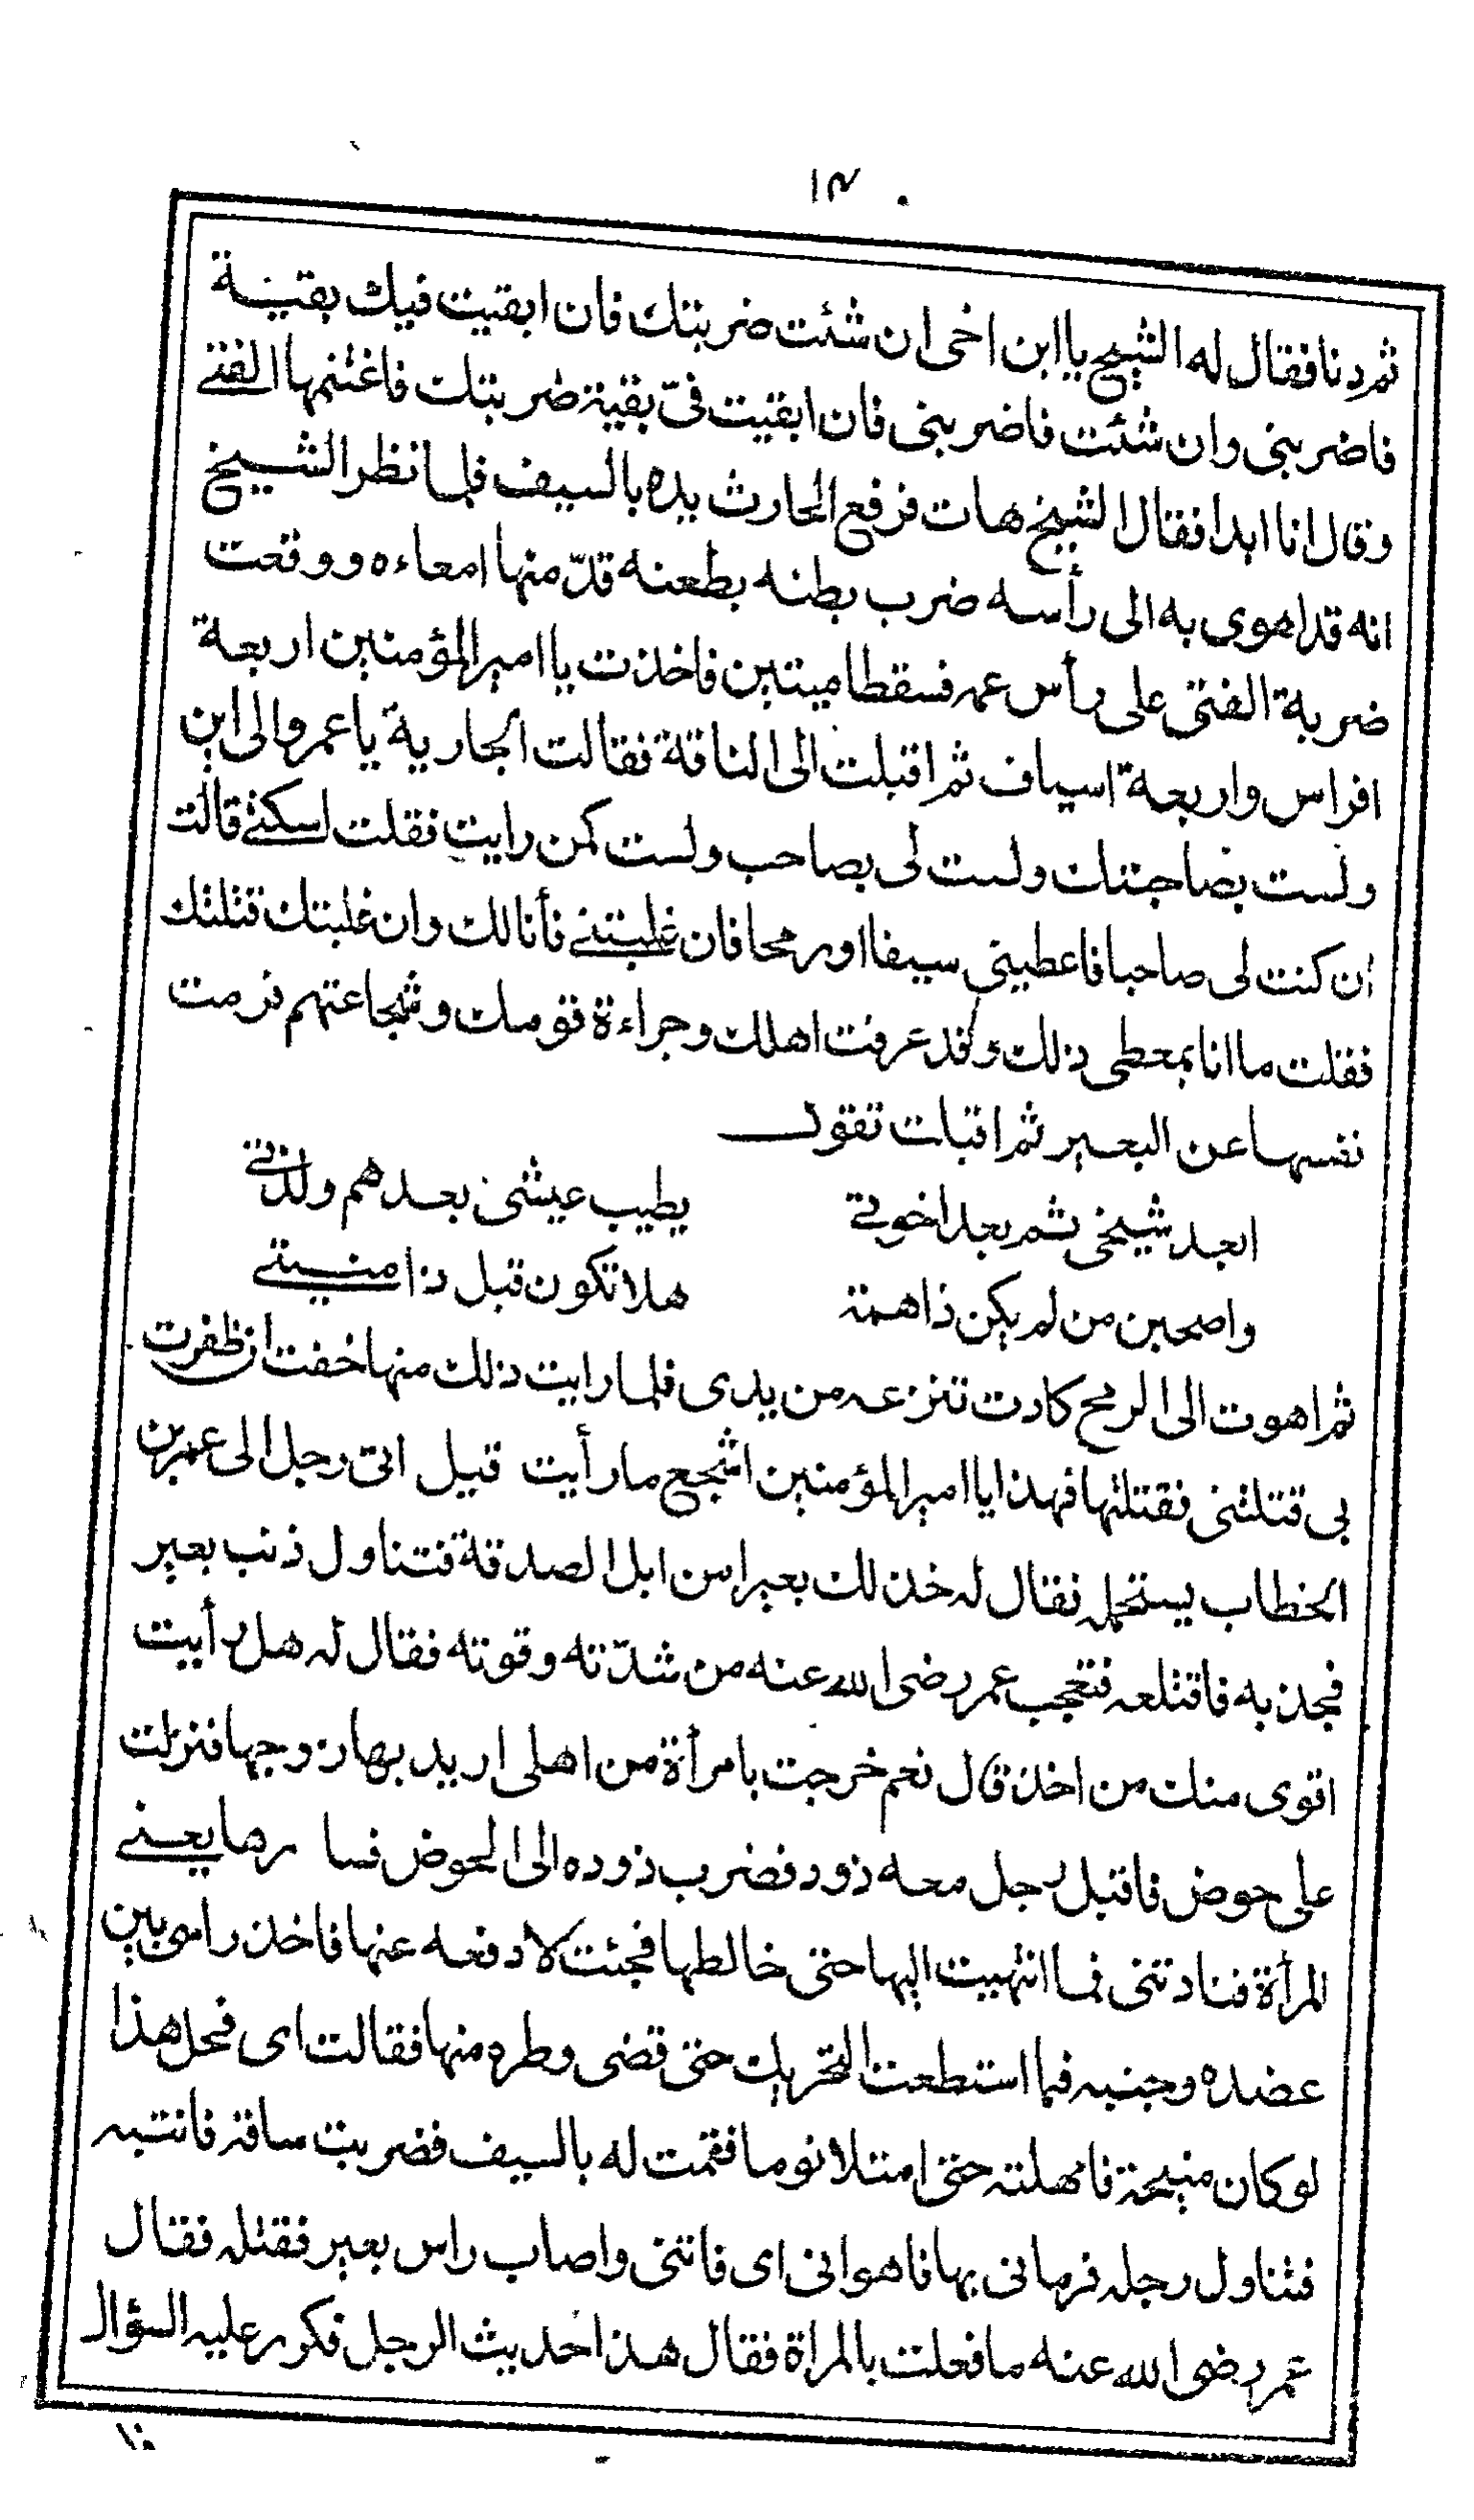 ١٣
ثم دنا فقال له الشيخ يا ابن اخى ان شئت ضربتك فان ابقيت فيك بقية
فاضربنى وان شئت فاضربنى فان ابقيت فىّ بقية ضربتك فاغتنمها الفتى
وقال انا ابدا فقال الشيخ هات فرفع الحارث يده بالسيف فلما نظر الشيخ
انه قد اهوى به الى رأسه ضرب بطنه بطعنه قدّ منها امعاءه ووقعت
ضربة الفتى على رأس عمه فسقطا ميتين فاخذت يا امير المؤمنين اربعة
افراس واربعة اسياف ثم اقبلت الى الناقة فقالت الجارية يا عمرو الى اين
ولست بصاحبتك ولست لى بصاحب ولست كمن رايت فقلت اسكتى قالت
ان كنت لى صاحبا فاعطينى سيفا اورمحا فان غلبتنى فأنا لك وان غلبتك قتلتك
فقلت ما انا بمعطى ذلك وقد عرفت اهلك وجراءة قومك وشجاعتهم فرمت
نفسها عن البعير ثم اقبلت تقول
ابعد شيخى ثم بعد اخوتى يطيب عيشى بعدهم ولذتى
واصحبن من لم يكن ذاهمة هلا تكون قبل ذا منيتى
ثم اهوت الى الرمح كادت تنزعه من يدى فلما رايت ذلك منها خفت ان ظفرت
بى قتلتنى فقتلتها فهذا يا امير المؤمنين اشجع ما رأيت قيل اتى رجل الى عمر بن
الخطاب يستحمله فقال له خذ لك بعيرا من ابل الصدقة فتناول ذنب بعير
فجذبه فاقتلعه فتعجب عمر رضى الله عنه من شدّته وقوته فقال له هل رأيت
اقوى منك من اخذ قال نعم خرجت بامرأة من اهلى اريد بها زوجها فنزلت
على حوض فاقبل رجل معه ذود فضرب ذوده الى الحوض فسا رها يعنى
المرأة فنادتنى فما انتهيت اليها حتى خالطها فجئت لادفعه عنها فاخذ راسى بين
عضده وجنبه فما استطعت التحريك حتى قضى وطره منها فقالت اى فحل هذا
لوكان منيحة فامهلته حتى امتلا نوما فقمت له بالسيف فضربت ساقه فانتبه
فتناول رجله فرمانى بها فاهوانى اى فاتنى واصاب راس بعير فقتله فقال
عمر رضى الله عنه ما فعلت بالمراة فقال هذا حديث الرجل فكور عليه السؤال